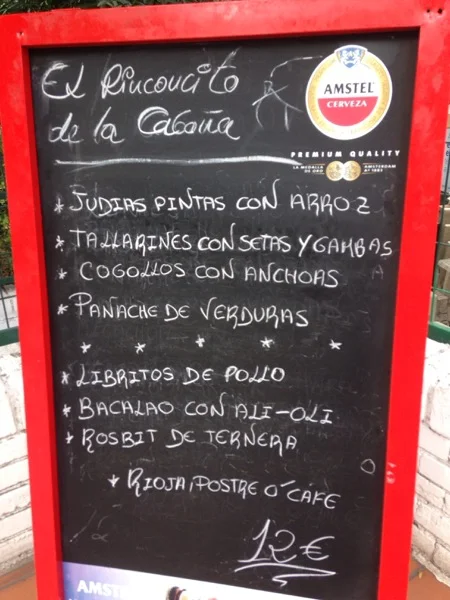 El Rinconcito
de la Cabaña
AMSTEL
CERVEZA
PREMIUM QUALITY
LA MEDALLA
DE ORO
AMSTERDAM
AÑO 1883
* JUDIAS PINTAS CON ARROZ
* TALLARINES CON SETAS Y GAMBAS
* COGOLLOS CON ANCHOAS
* PANACHE DE VERDURAS
* * * * *
* LIBRITOS DE POLLO
* BACALAO CON ALI-OLI
* ROSBIT DE TERNERA
* RIOJA, POSTRE O' CAFE
12€
AMST